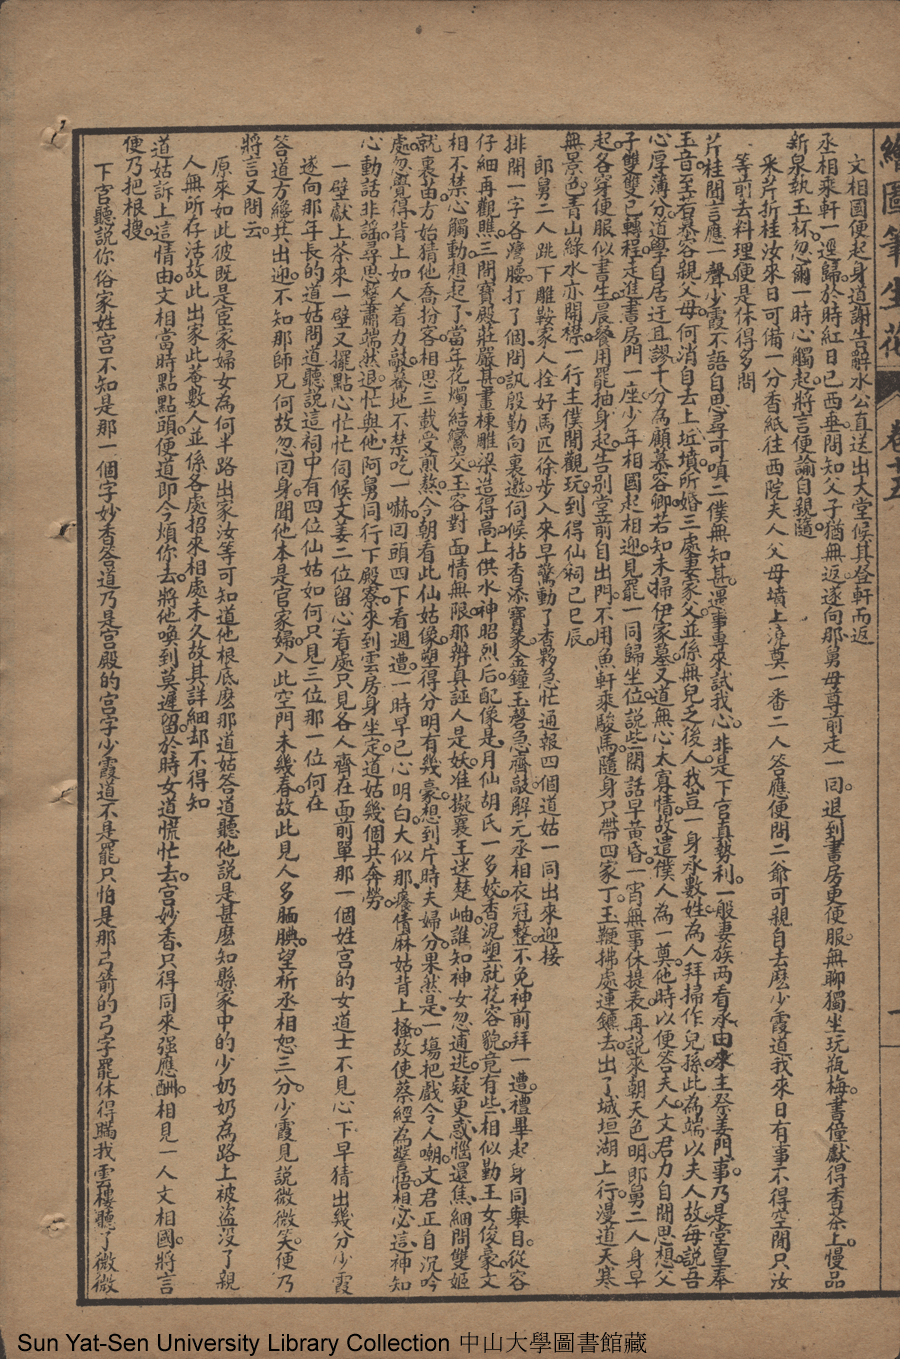 繪圖筆生花 卷十五
文相國便起身道謝告辭水公直送出大堂候其登軒而返
丞相乘軒一逕歸於時紅日已西垂問知父子猶無返遂向那舅母尊前走一回退到書房更便服無聊獨坐玩瓶梅書僮獻得香茶上慢品
新泉執玉杯忽爾一時心觸起將言便諭自親隨
來芹折桂汝來日可備一分香紙往西院夫人父母墳上澆奠一番二人答應便問二爺可親自去麽少霞道我來日有事不得空閒只汝
等前去料理便是休得多問
芹桂聞言應一聲少霞不語自思尋可嗔二僕無知甚逞事專來試我心非是下官真勢利一般妻族两看承由來主祭姜門事乃是堂皇奉
玉音至若慕容親父母何消自去上坵墳所婚三處妻家父並係無兒之後人我豈一身承數姓為人拜掃作兒孫此為端以夫人故每說吾
心厚薄分道學自居迂且謬千分為顧慕容卿若知未掃伊家墓又道無心太寡情故遣僕人為一奠他時以便答夫人文君力自閒思想父
子雙雙已轉程走進書房門一座少年相國起相迎見罷一同歸坐位說些閒話早黄昏一宵無事休提表再說來朝天色明郎舅二人身早
起各穿便服似書生晨餐用罷抽身起告别堂前自出門不用魚軒乘駿馬隨身只帶四家丁玉鞭拂處連鑣去出了城垣湖上行漫道天寒
無景色青山綠水亦開襟一行主僕閒觀玩到得仙祠已巳辰
郎舅二人跳下雕鞍家人拴好馬匹徐步入來早驚動了香夥急忙通報四個道姑一同出來迎接
排開一字各灣腰打了個問訊殷勤向裏邀伺候拈香添寶篆金鐘玉磬急齊敲解元丞相衣冠整不免神前拜一遭禮畢起身同舉目從容
仔細再觀瞧三間寶殿莊嚴甚畫棟雕梁造得高上供水神昭烈后配像是月仙胡氏一多姣香泥塑就花容貌竟有些相似勤王女俊豪文
相不禁心觸動想起了當年花燭結鸞交玉容對面情無限那辨真誣人是妖准擬襄王迷楚岫誰知神女忽逋逃疑更惑惱還焦細問雙姬
就裏苗方始猜他喬扮客相思三載受煎熬今朝看此仙姑像塑得分明有幾豪想到片時夫婦分果然是一塲把戲令人嘲文君正自沉吟
處忽覺得背上如人着力敲驀地不禁吃一嚇回頭四下看週遭一時早已心明白大似那癢倩麻姑背上搔故使蔡經為警悟想必這神知
心動話非謡尋思整肅端然退忙與他阿舅同行下殿寮來到雲房身坐定道姑幾個共奔勞
一壁獻上茶來一壁又擺點心忙忙伺候文姜二位留心看處只見各人齊在面前單那一個姓宫的女道士不見心下早猜出幾分少霞
遂向那年長的道姑問道聽說這祠中有四位仙姑如何只見三位那一位何在
答道方纔共出迎不知那師兄何故忽囘身聞他本是官家婦入此空門未幾春故此見人多腼腆望祈丞相恕三分少霞見說微微笑便乃
將言又問云
原來如此彼既是宦家婦女為何半路出家汝等可知道他根底麽那道姑答道聽他說是甚麽知縣家中的少奶奶為路上被盗沒了親
人無所存活故此出家此菴數人並係各處招來相處未久故其詳細却不得知
道姑訴上這情由文相當時點點頭便道即今煩你去將他喚到莫遲留於時女道慌忙去宫妙香只得同來强應酬相見一人文相國將言
便乃把根搜
下官聽說你俗家姓宫不知是那一個字妙香答道乃是宫殿的宫字少霞道不是罷只怕是那弓箭的弓字罷休得瞞我雲樓聽了微微
Sun Yat-Sen University Library Collection 中山大學圖書館藏